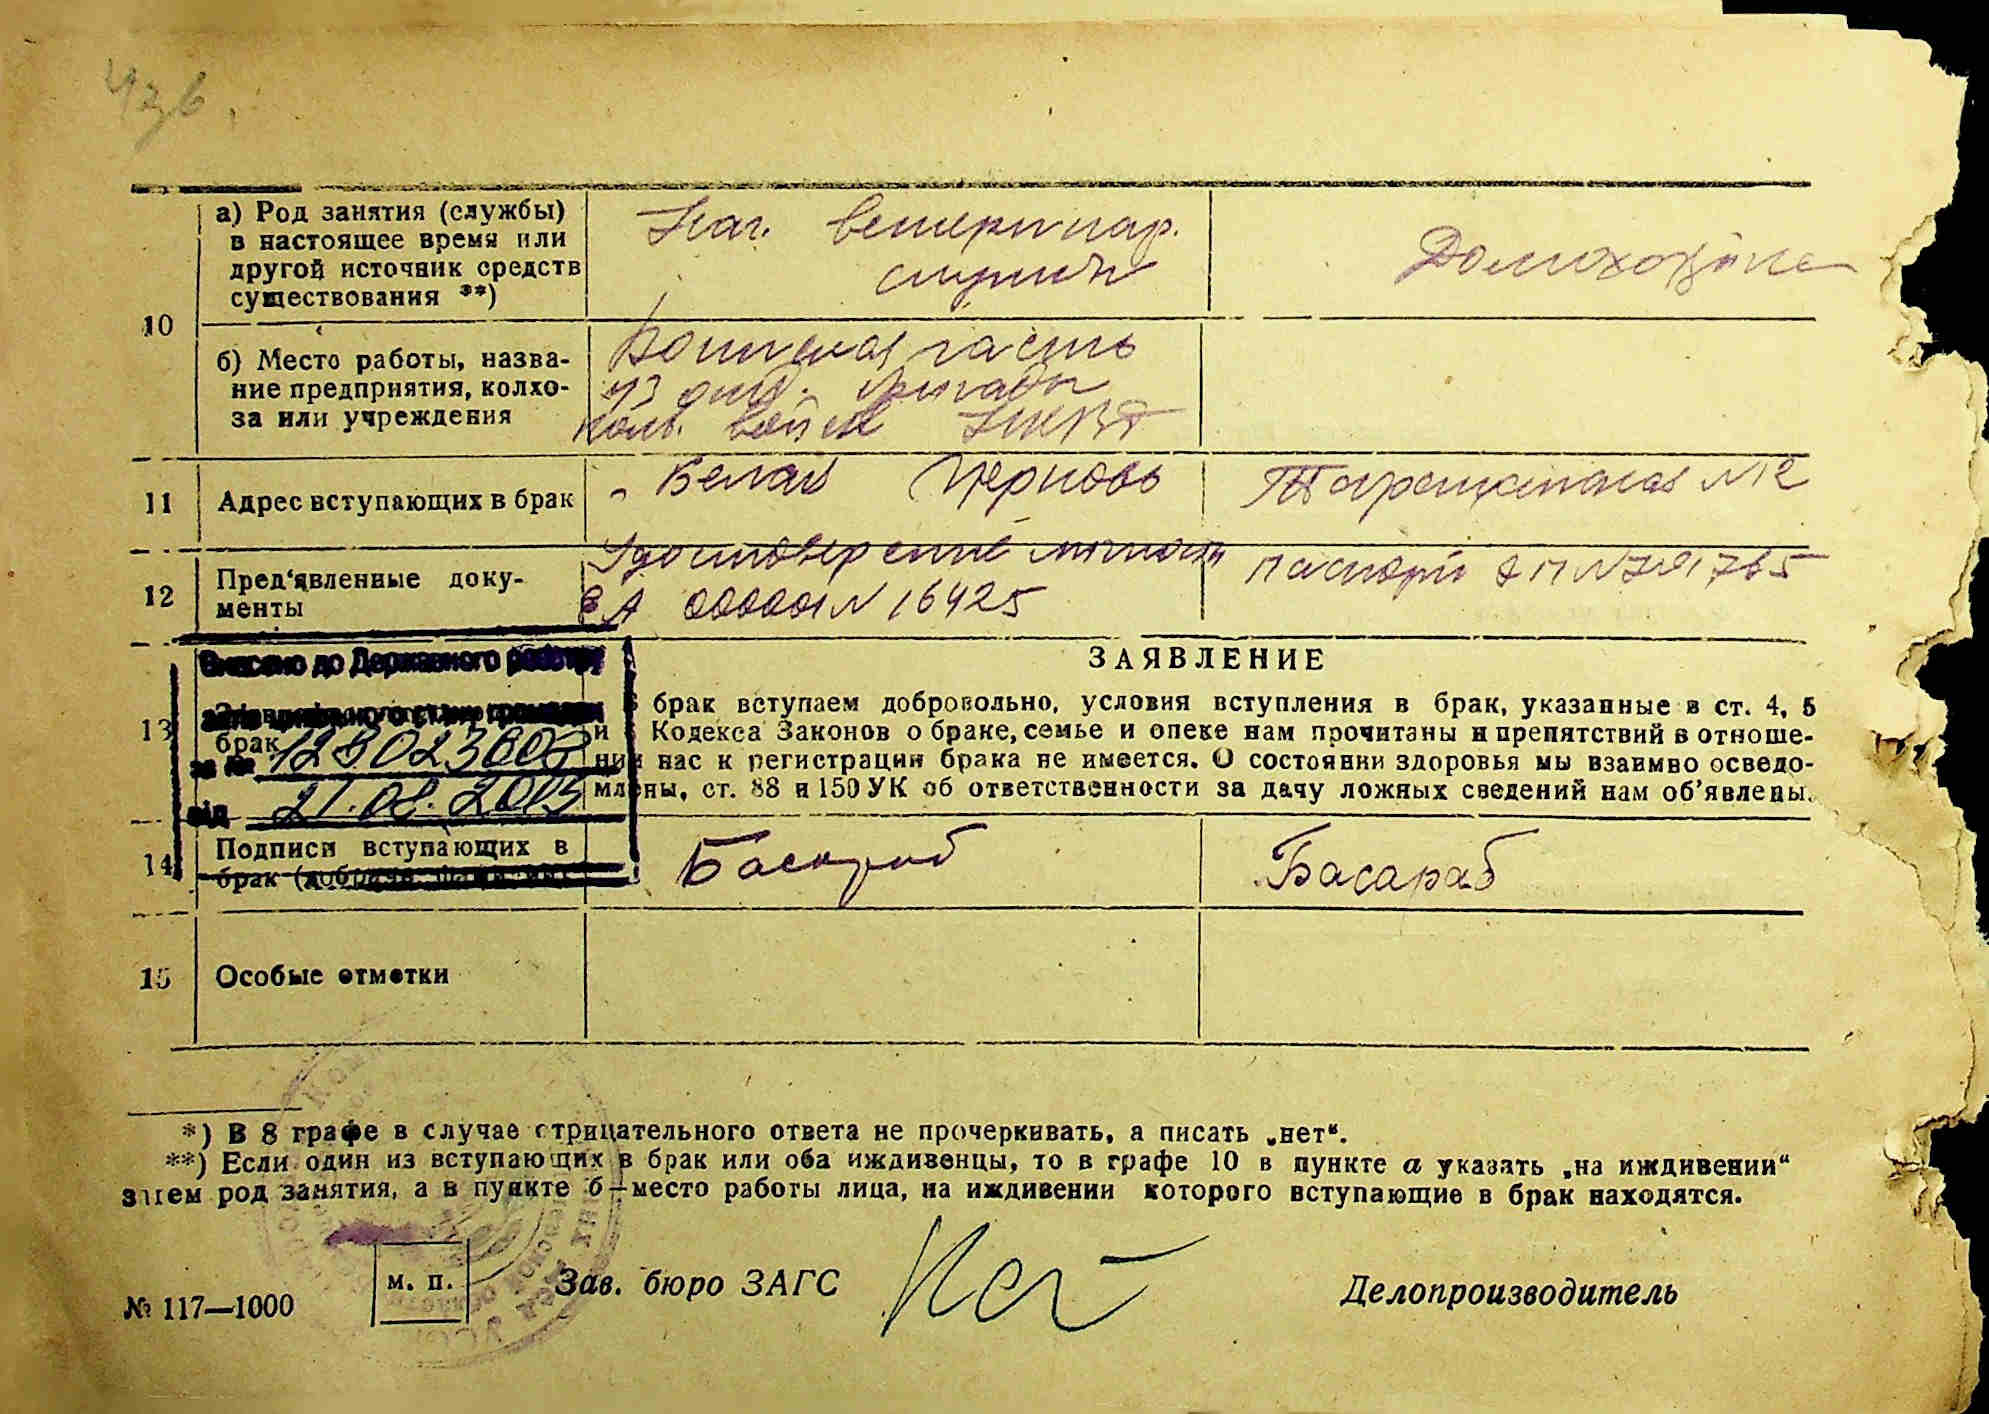 10
а) Род занятия (службы)
в настоящее время или
другой источник средств
существования **)
Нач. ветеринар.
службы
Домохозяйка
б) Место работы, назва-
ние предприятия, колхо-
за или учреждения
Воинская часть
бригады
войск НКВД
11
Адрес вступающих в брак
Белая Церковь
Таращанская №12
12
Пред'явленные доку-
менты
Удостоверение личности
№ 16425
паспорт
13
Внесено до Державного реєстру
брак
за №
від 21.08.2013
ЗАЯВЛЕНИЕ
В брак вступаем добровольно, условия вступления в брак, указанные в ст. 4, 5
и Кодекса Законов о браке, семье и опеке нам прочитаны и препятствий в отноше-
нии нас к регистрации брака не имеется. О состоянии здоровья мы взаимво осведо-
млены, ст. 88 и 150 УК об ответственности за дачу ложных сведений нам об'явлены.
14
Подписи вступающих в
брак
Басараб
Басараб
15
Особые отметки
*) В 8 графе в случае отрицательного ответа не прочеркивать, а писать „нет“.
**) Если один из вступающих в брак или оба иждивенцы, то в графе 10 в пункте а указать „на иждивении“
затем род занятия, а в пункте б—место работы лица, на иждивении которого вступающие в брак находятся.
№ 117—1000
м. п.
Зав. бюро ЗАГС
Делопроизводитель